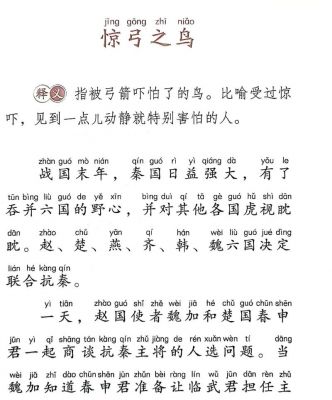 jīng gōng zhī niǎo
惊弓之鸟
释义 指被弓箭吓怕了的鸟。比喻受过惊
吓，见到一点儿动静就特别害怕的人。
zhàn guó mò nián qín guó rì yì qiáng dà yǒu le
战国末年，秦国日益强大，有了
tūn bìng liù guó de yě xīn bìng duì qí tā gè guó hǔ shì dān
吞并六国的野心，并对其他各国虎视眈
dān zhào chǔ yān qí hán wèi liù guó jué dìng
眈。赵、楚、燕、齐、韩、魏六国决定
lián hé kàng qín
联合抗秦。
yì tiān zhào guó shǐ zhě wèi jiā hé chǔ guó chūn shēn
一天，赵国使者魏加和楚国春申
jūn yì qǐ shāng tán kàng qín zhǔ jiàng de rén xuǎn wèn tí dāng
君一起商谈抗秦主将的人选问题。当
wèi jiā zhī dào chūn shēn jūn zhǔn bèi ràng lín wǔ jūn dān rèn zhǔ
魏加知道春申君准备让临武君担任主